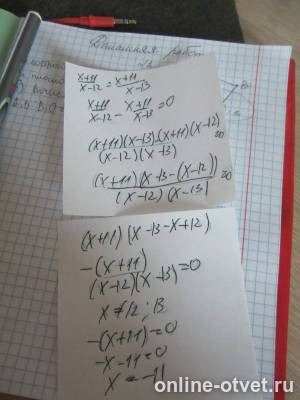 Домашняя работа
x+11/x-12 = x+11/x-13
x+11/x-12 - x+11/x-13 = 0
(x+11)(x-13)-(x+11)(x-12)/(x-12)(x-13) = 0
(x+11)(x-13-(x-12))/(x-12)(x-13) = 0
(x+11)(x-13-x+12)
-(x+11)/(x-12)(x-13) = 0
x ≠ 12; 13
-(x+11)=0
-x-11=0
x = -11
online-otvet.ru